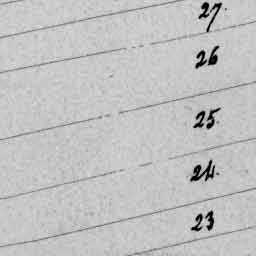 27.
26
25.
24.
23